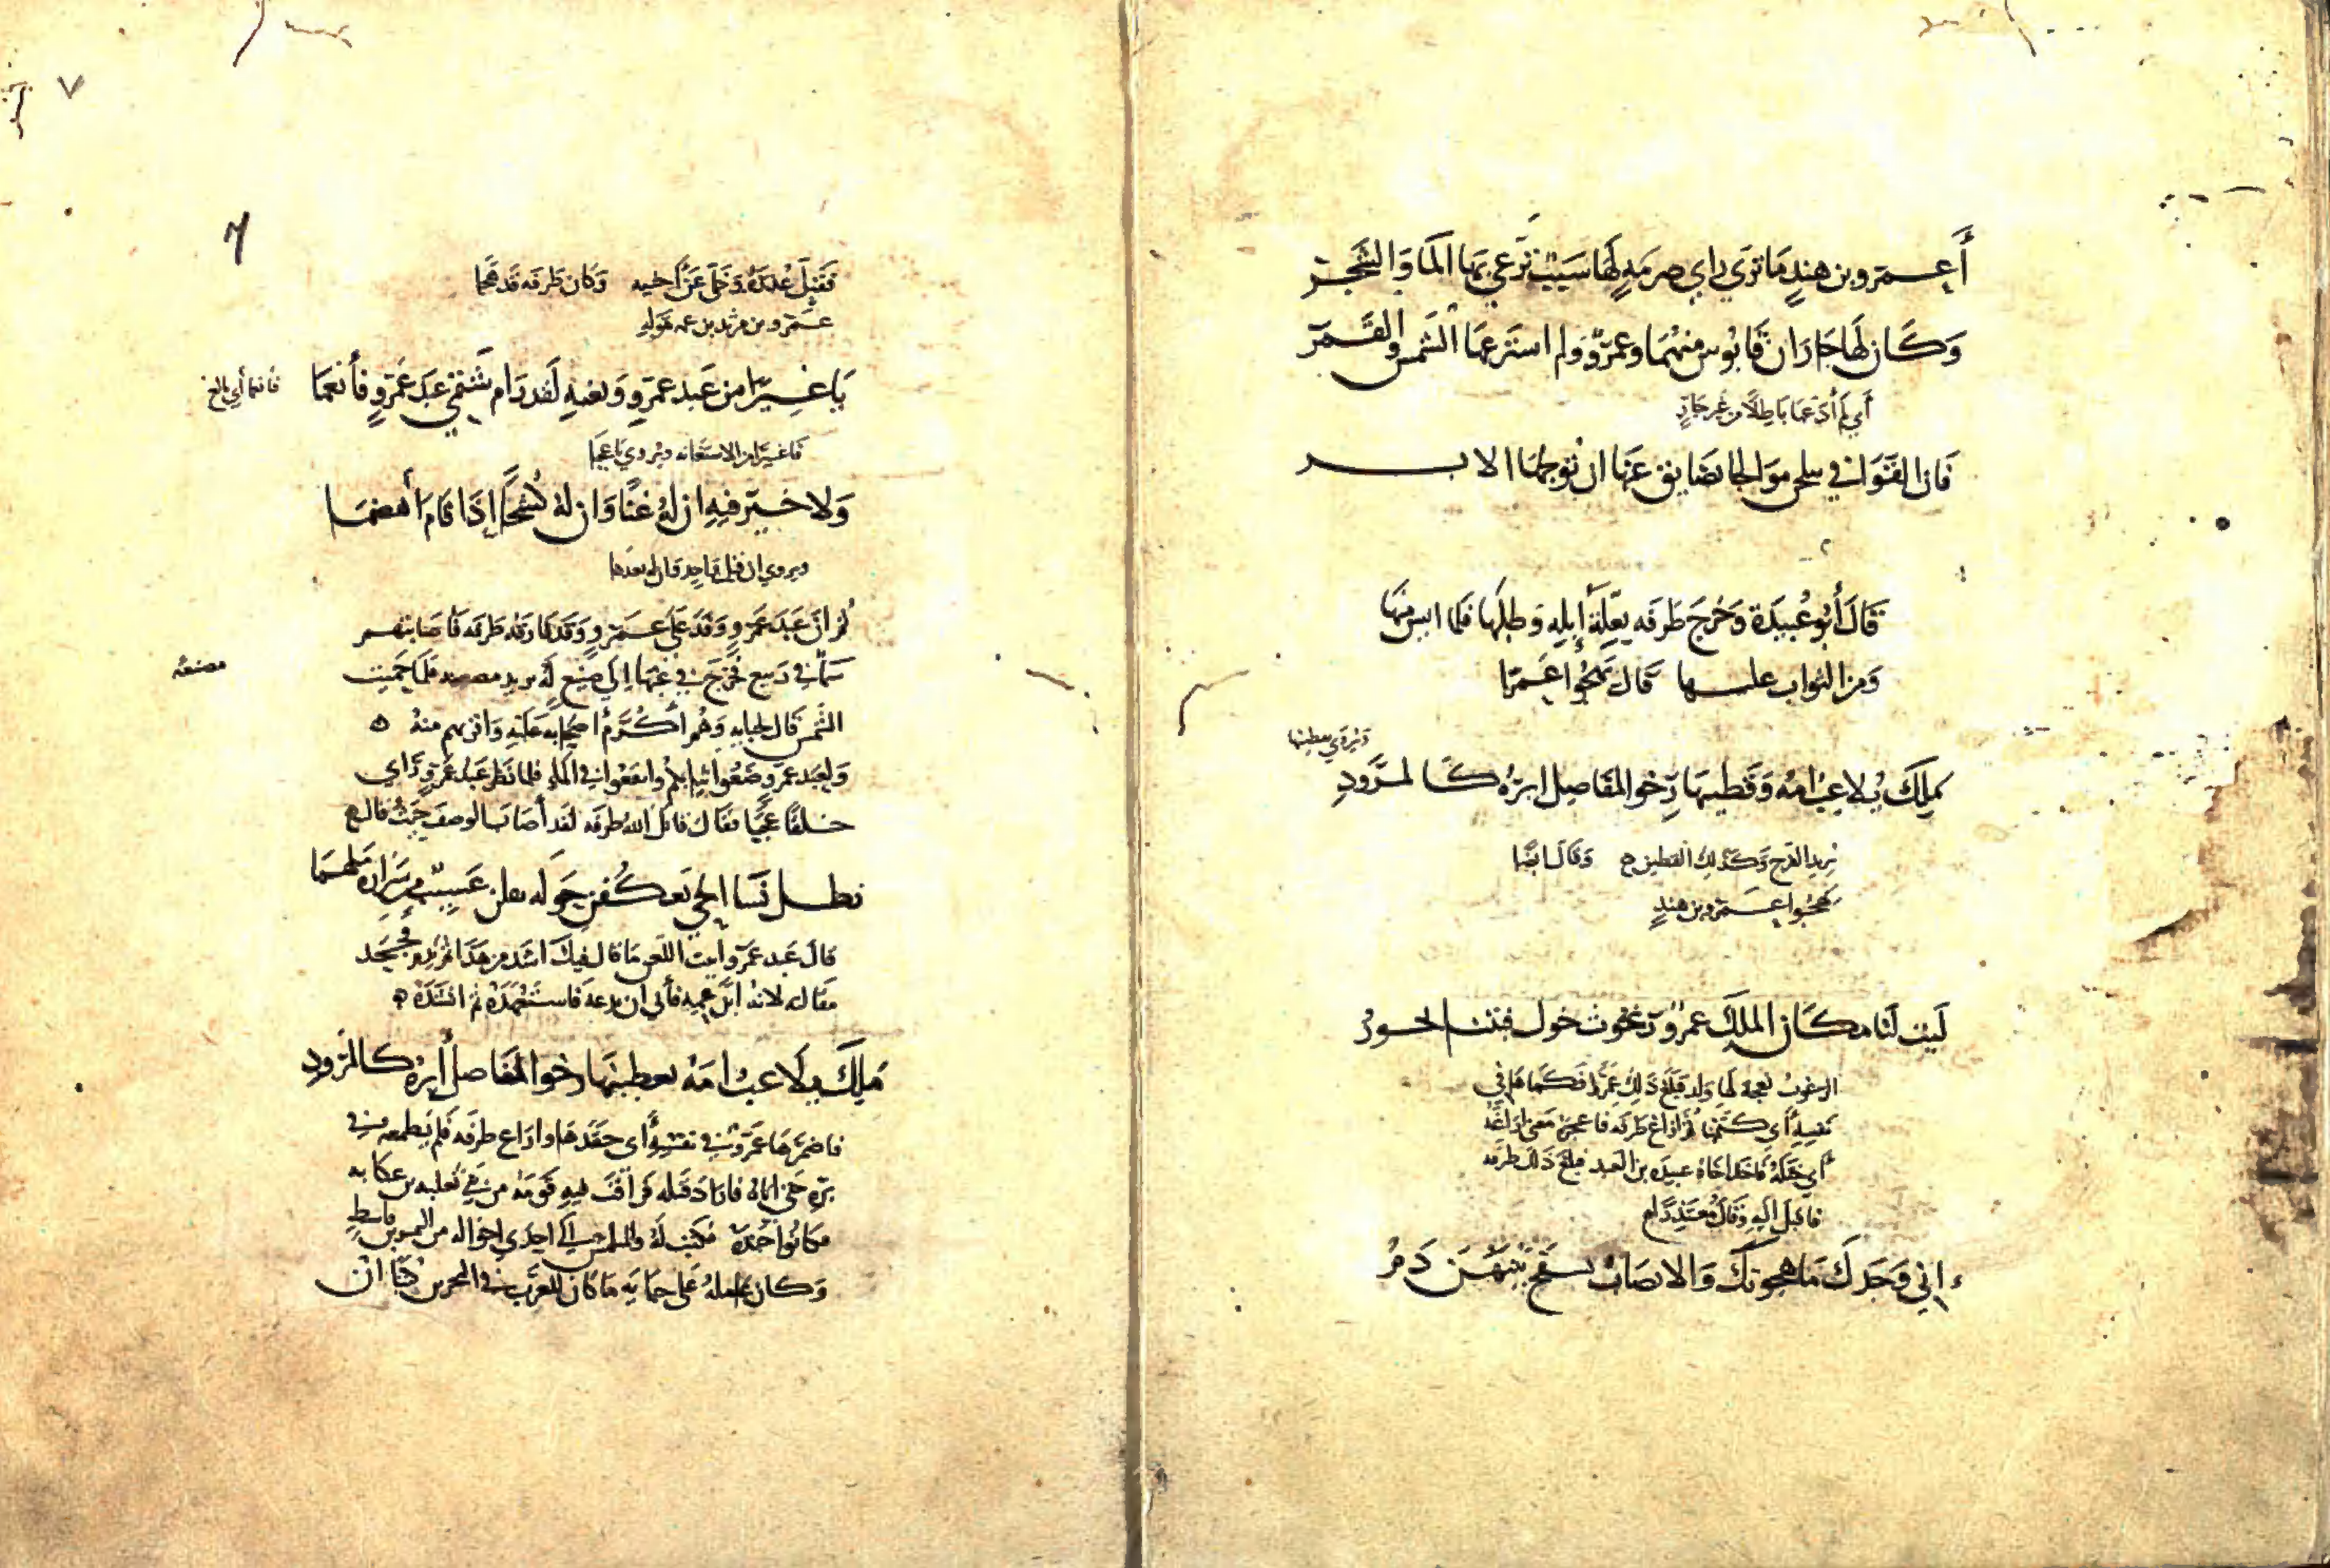 أعمرو بن هندٍ ما ترى راي صرمةٍ لها سببٌ ترعى بها الما والشجر
وكان لها جاران قابوس منهما وعمرٌو ولم استرعها الشمس والقمر
أي لم أدعها باطلا من غير جارٍ
فان القوافي يتلجن موالجا تضايق عنها ان تولجها الابر
قال أبو عبيدة وخرج طرفه إبله وطلبها فلما ايس منها
ومن الثواب عليها قال يهجوا عمرا
ويروي يعطينها
ملك يلاعب امه وقطينها رخو المفاصل ايره كالمرود
يريد الفرح وكذلك القطين وقال ايضا
يهجوا عمرو بن هندٍ
ليت لنا مكان الملك عمرو رغوث حول قبتنا تخور
الرغوث نعجة لها ولد فبلغ ذلك عمرا فكماها في
نفسه أي كتمها
أي فاخذ اخاه عبيده بن العبد فبلغ ذلك طرفه
فاقبل اليه وقال معتذرا
إني وجدك ما هجوتك والانصاب يسفح بينهن دم
٧
٦
فقبل عذره وخلى عن أخيه وكان طرفه قد هجا
عمرو بن مرثد بن عمه بقوله
يا عجبا من عبد عمرو وبغيه لقد رام شتمي عبد عمرو فأنعما
فانعما أي بالغ
الاستغاثه ويروي يا عجبا
ولا خير فيه ان له غنا وان له كشحا إذا قام أهضما
ويروي ان قيل واجد قال بعدها
ثم ان عبد عمرو وفد على عمرو وقد فارقه طرفه فأصابتهم
سما في ربيع فخرج في غبها إلى صنيع له يريد مصنعه فلما حميت
مصنعه
الشمس قال لجبابيه وهم أكرم اصحابه عليه واقربهم منه
ولعبد عمرو ضعوا ثيابكم وانقعوا في الماء فلما نظر عبد عمرو راي
خلقا عجبا فقال قاتل الله طرفه لقد أصاب الوصف حيث قال
تظل نسا الحي يعكفن حوله يقلن عسيب من سرارة ملهما
قال عبد عمرو ابيت اللعن ما قال فيك اشد من هذا ثم ندم فجحد
مقاله لانه ابن عمه فأبى ان يدعه فاستعهده ثم انشده
ملك يلاعب امه يعطينها رخو المفاصل أيره كالمرود
فاضمرها عمرو في نفسه أي حقدها واراغ طرفه فلم يطمعه في
بره حتى اتاه فاراد قتله فراقب فيه قومه من بني ثعلبه بن عكابه
فكانوا فكتب له وللمتلمس إلى احدي اخواله من
وكان عامله على ما كان للعرب في البحرين كتبا ان